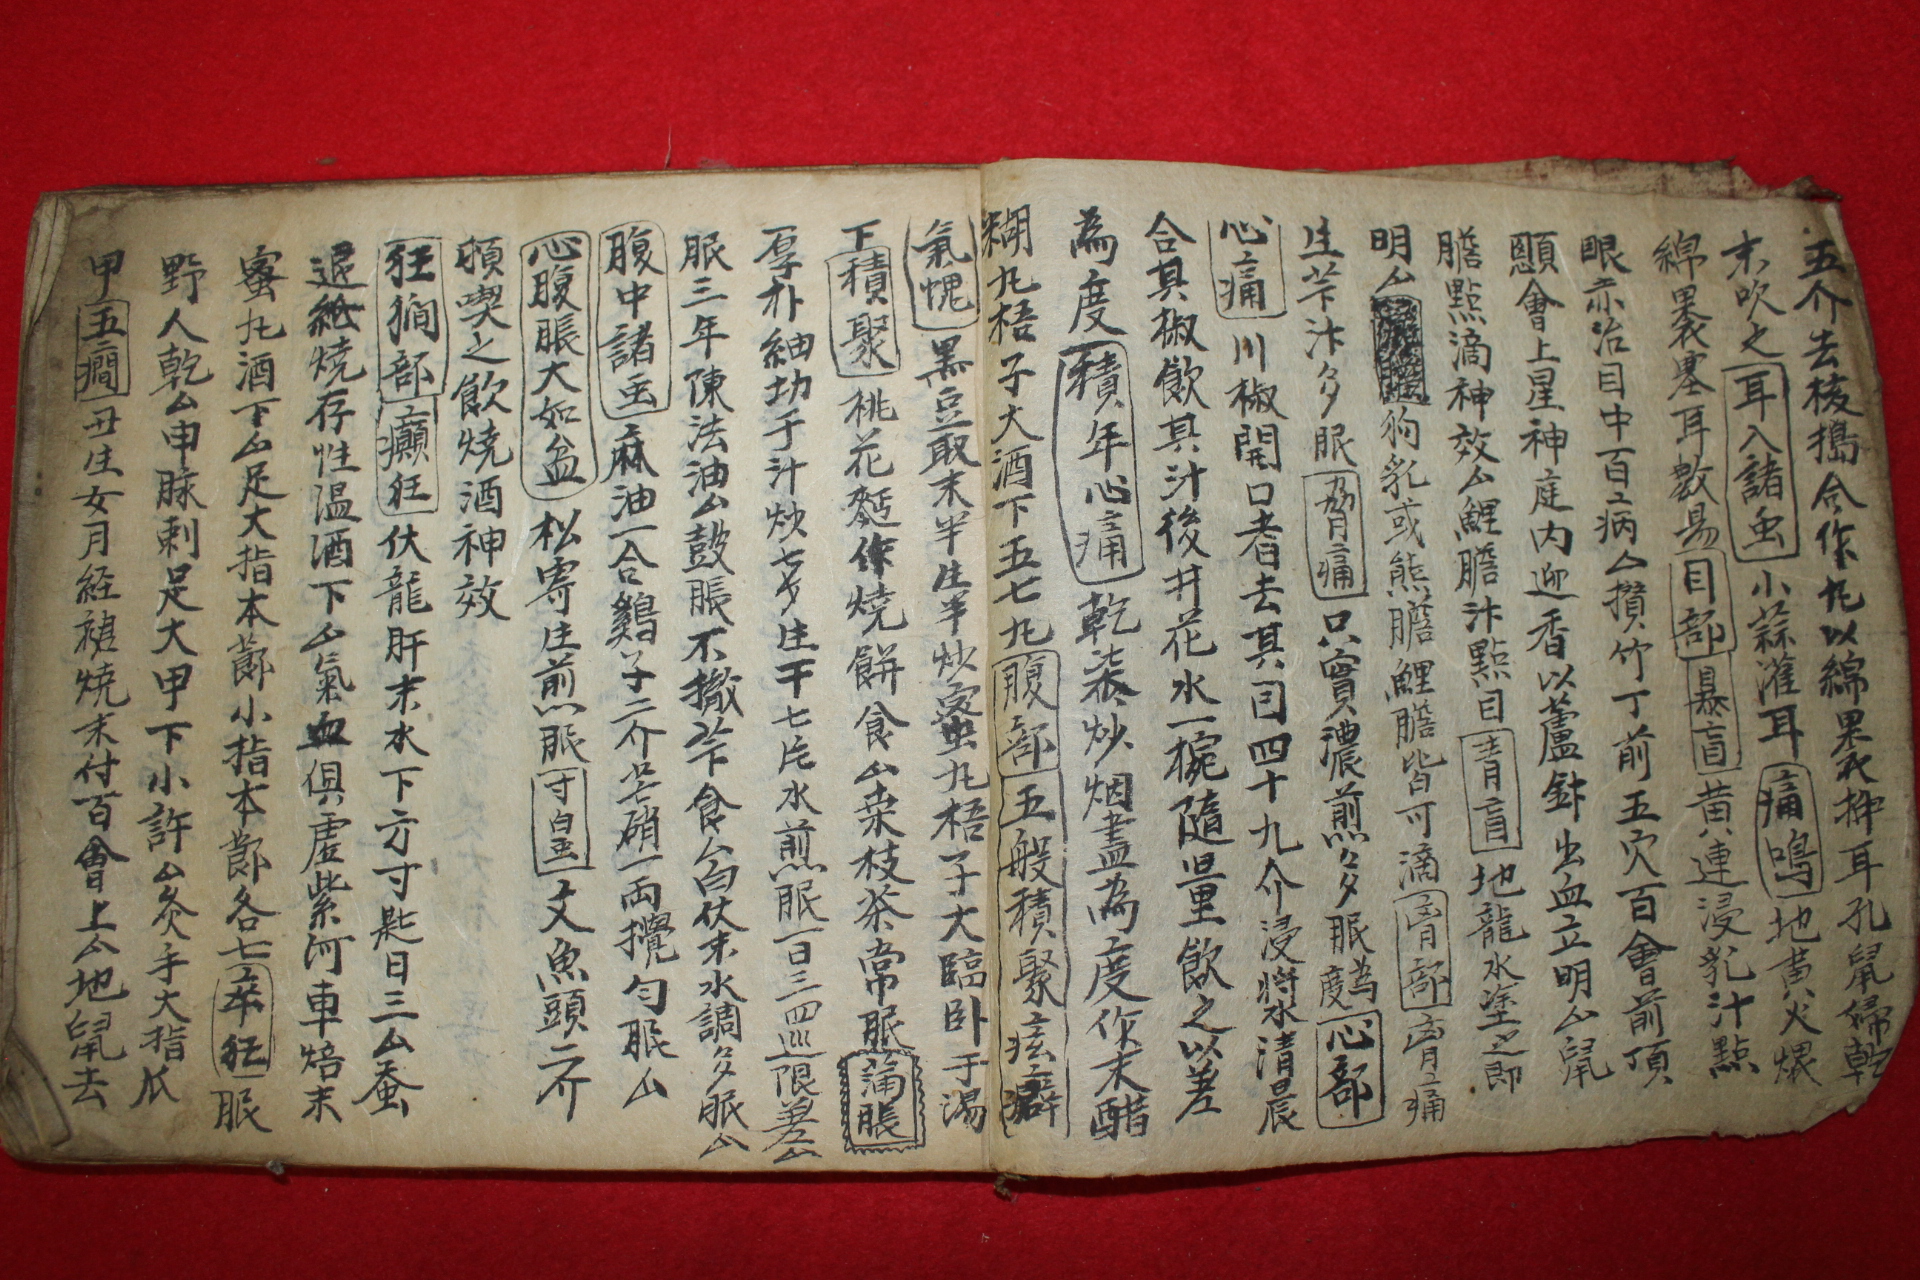 五介去棱搗合作丸以綿裹揷耳孔鼠婦乾
末吹之耳入諸虫小蒜灌耳痛鳴地黃火煨
綿裹塞耳數易目部暴盲黃連浸乳汁點
眼亦治目中百病厶攅竹丁前五穴百會前頂
顖會上星神庭內迎香以蘆針出血立明厶鼠
膽點滴神效厶鯉膽汁點目青盲地龍水塗之即
明厶狗乳或熊膽鯉膽皆可滴胷部胷痛
生芐汁多服脅痛只實濃煎多服爲度心部
心痛川椒開口者去其目四十九介浸將水淸晨
合其椒飮其汁後井花水一椀隨量飮之以差
爲度積年心痛乾柒炒烟盡爲度作末醋
糊丸梧子大酒下五七丸腹部五般積聚痃癖
氣愧黑豆取末半生半炒蜜丸梧子大臨卧于湯
下積聚桃花麪作燒餠食厶桑枝茶常服蒲脹
厚朴細切于汁炒七多生干七片水煎服一日三四巡限差厶
服三年陳法油厶鼓脹不撤芐食厶白伏末水調多服厶
腹中諸虫麻油一合鷄子二介芒硝一兩攪勻服厶
心腹脹大如盆松寄生煎服寸白虫文魚頭二介
頓喫之飮燒酒神效
狂癎部癲狂伏龍肝末水下方寸匙日三厶蚕
退紙燒存性溫酒下厶氣血俱虛紫河車焙末
蜜丸酒下厶足大指本節小指本節各七卒狂服
野人乾厶申脉刺足大甲下小許厶灸手大指爪
甲五癎丑生女月経裙燒末付百會上厶地鼠去